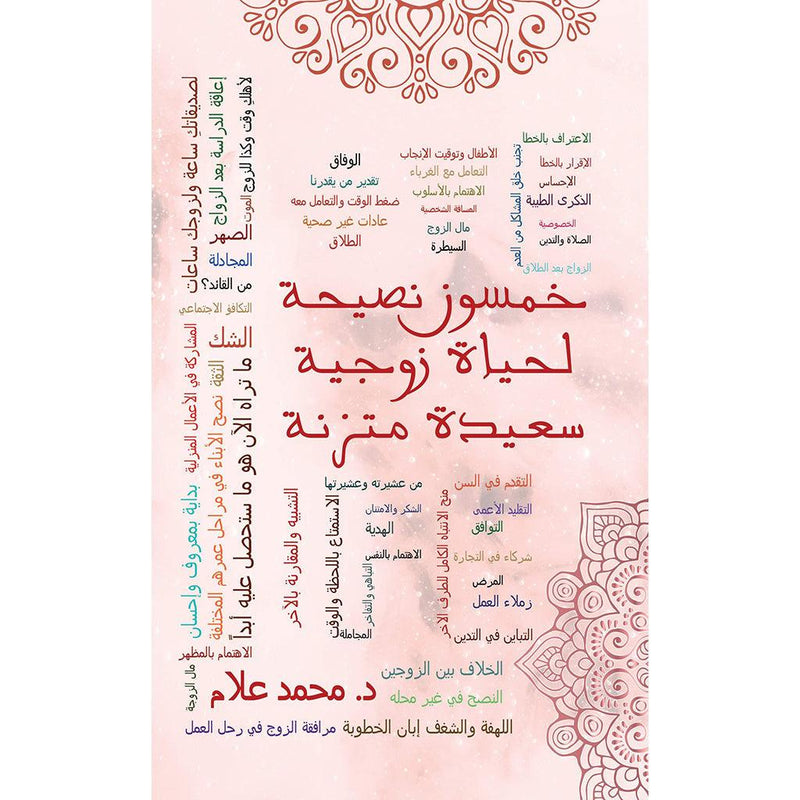 الاعتراف بالخطأ
الإقرار بالخطأ
الإحساس
الذكرى الطيبة
الخصوصية
الصلاة والتدين
الزواج بعد الطلاق
تجنب خلق المشاكل من العدم
الأطفال وتوقيت الإنجاب
التعامل مع الغرباء
الاهتمام بالأسلوب
المسافة الشخصية
مال الزوج
السيطرة
الوفاق
تقدير من يقدرنا
ضغط الوقت والتعامل معه
عادات غير صحية
الطلاق
لأهلك وقت وكذا للزوج
الموت
إعاقة الدراسة بعد الزواج
لصديقاتك ساعة ولزوجك ساعات
الصهر
المجادلة
من القائد؟
التكافؤ الاجتماعي
خمسون نصيحة
لحياة زوجية
سعيدة متزنة
الشك
الثقة
ما تراه الآن هو ما ستحصل عليه أبداً
نصح الأبناء في مراحل عمرهم المختلفة
المشاركة في الأعمال المنزلية
بداية بمعروف وإحسان
الاهتمام بالمظهر
مال الزوجة
التقدم في السن
التقليد الأعمى
التوافق
شركاء في التجارة
المرض
زملاء العمل
التباين في التدين
منح الانتباه الكامل للطرف الآخر
من عشيرته وعشيرتها
الشكر والامتنان
الهدية
الاهتمام بالنفس
التباهي والتفاخر
المجاملة
الاستمتاع باللحظة والوقت
التشبيه والمقارنة بالآخر
الخلاف بين الزوجين
النصح في غير محله
د. محمد علام
اللهفة والشغف إبان الخطوبة
مرافقة الزوج في رحل العمل